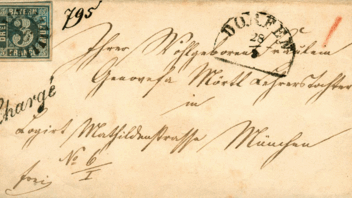 3
795
DORFEN
28
Chargé
Ihrer Wohlgeboren Fräulein
Genovefa Mörtl Lehrerstochter
in
Logirt Mathildenstrasse München
No 6/I
frei